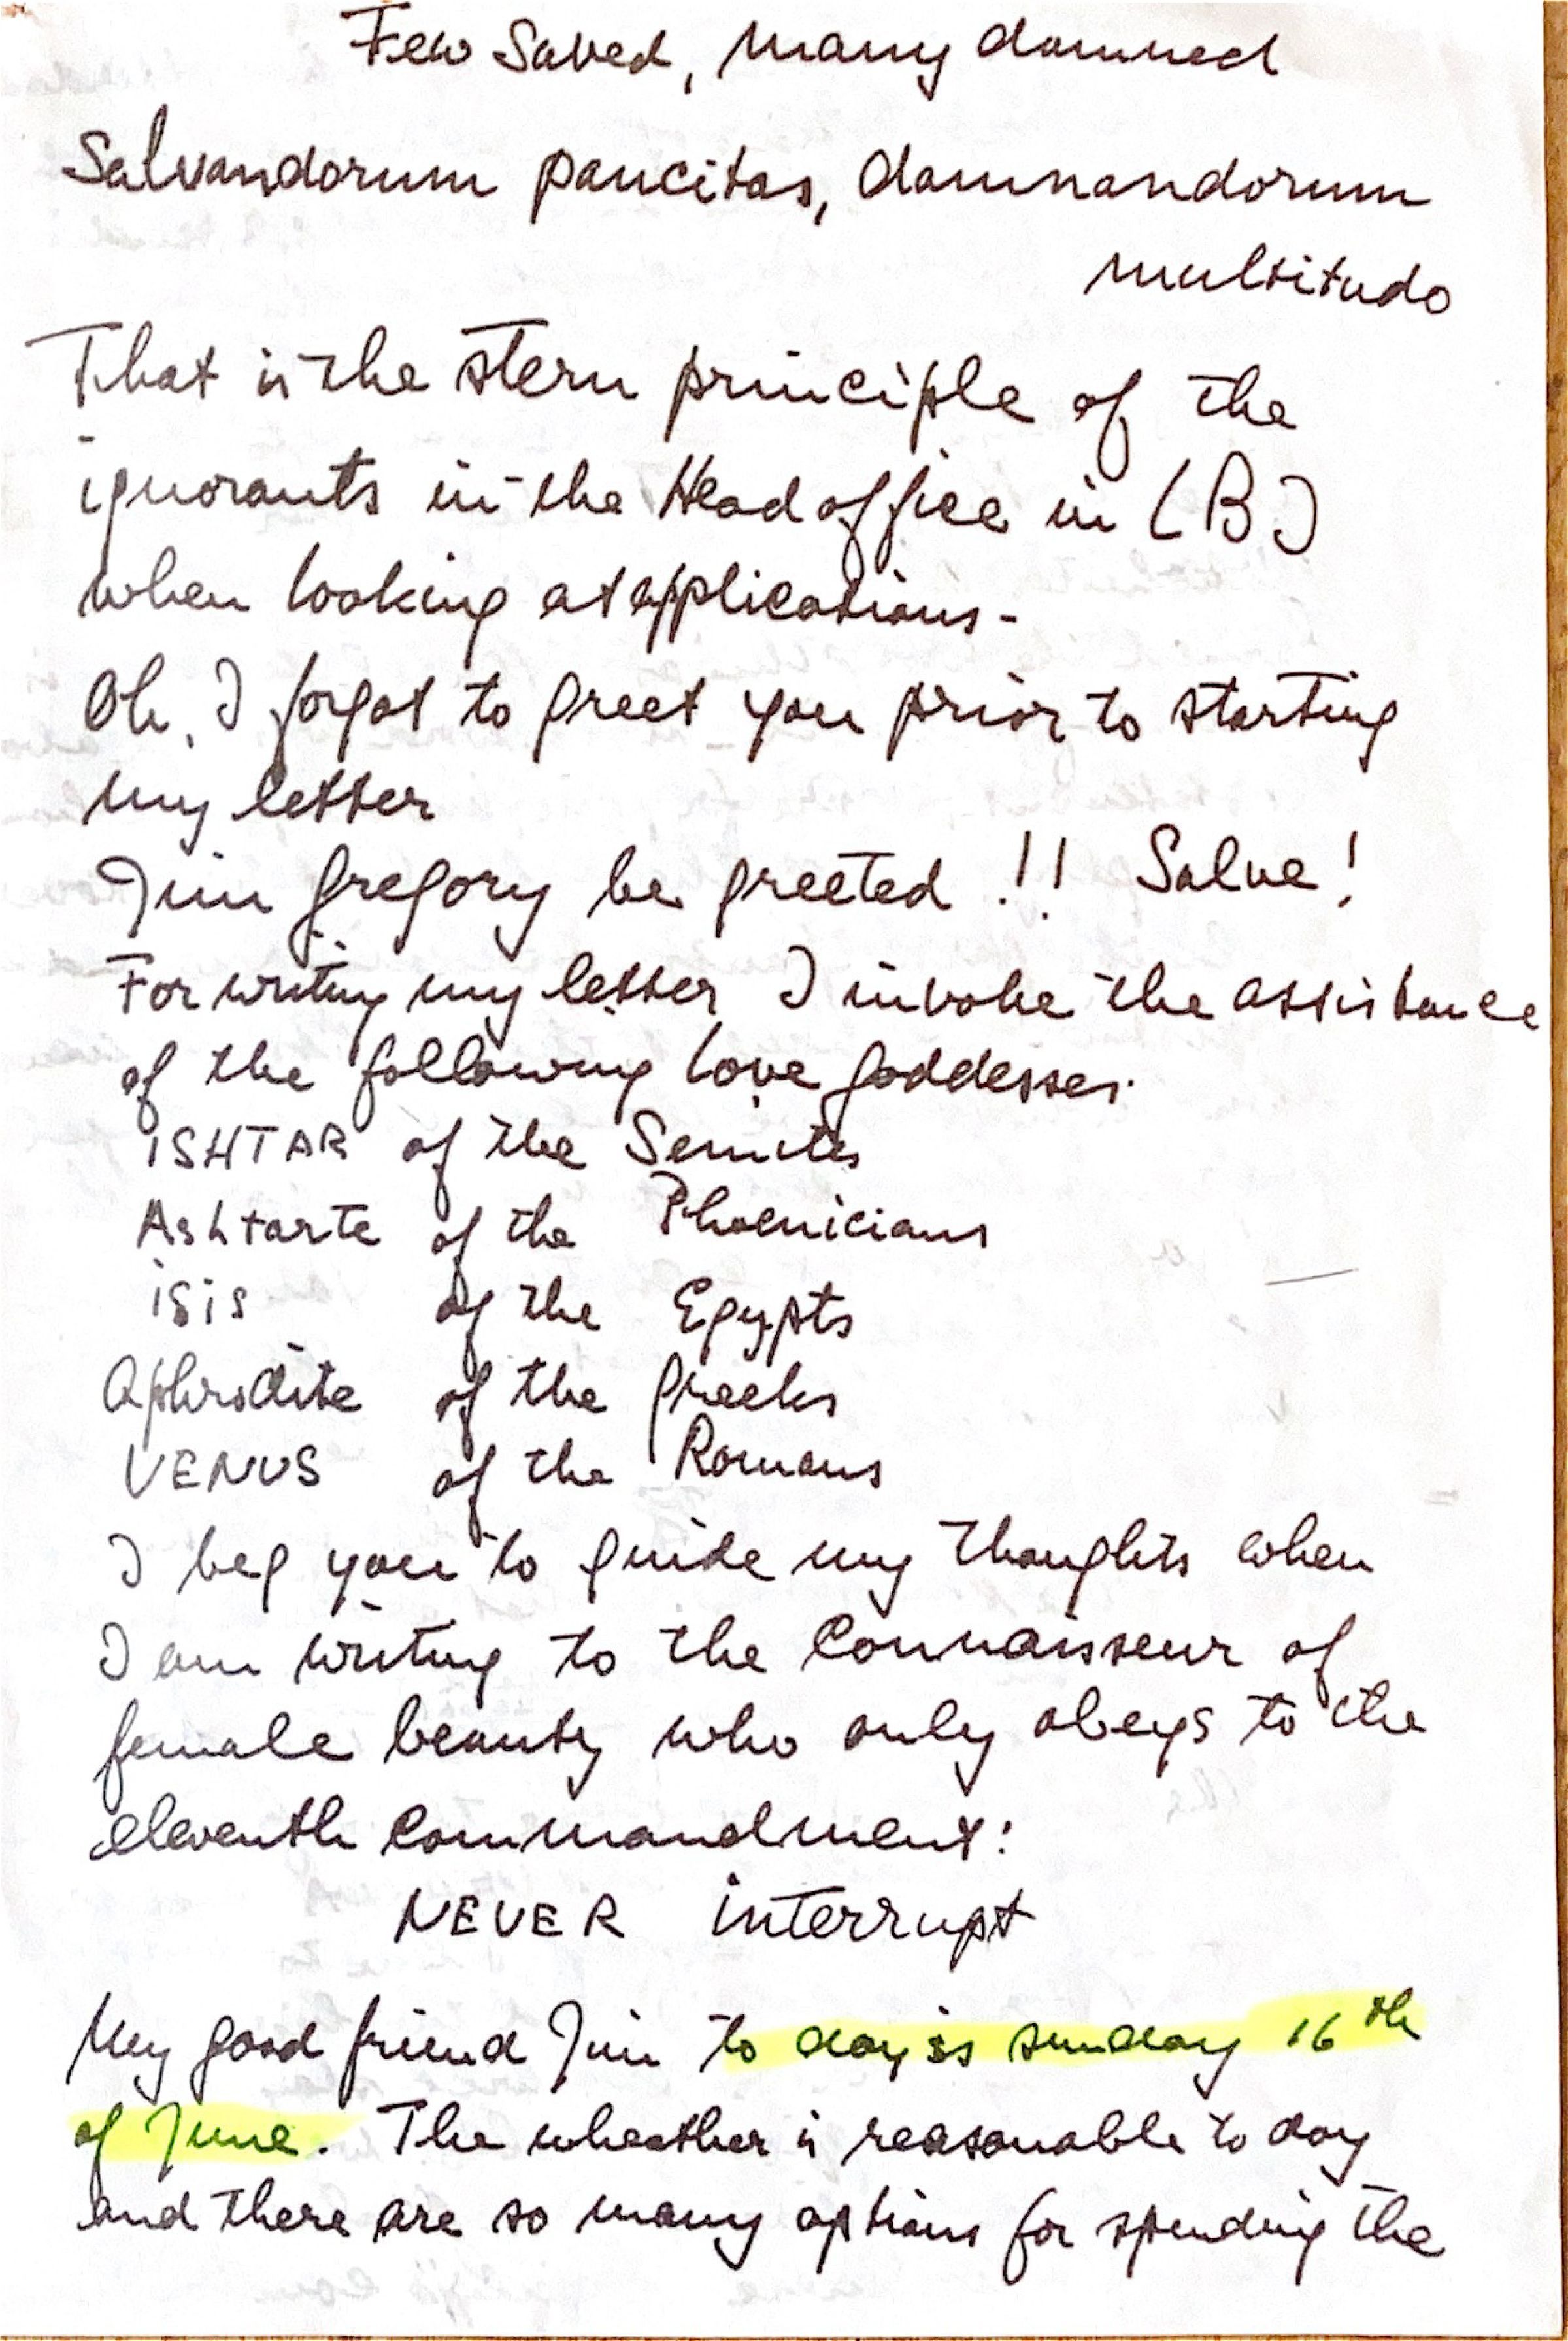 Few Saved, many damned
Salvandorum paucitas, damnandorum
multitudo
That is the stern principle of the
ignorants in the Head office in (B)
when looking at applications -
Oh, I forgot to greet you prior to starting
my letter
Jim Gregory be greeted !! Salve!
For writing my letter I invoke the assistance
of the following love goddesses.
ISHTAR of the Semites
Ashtarte of the Phoenicians
isis of the Egypts
Aphrodite of the Greeks
VENUS of the Romans
I beg you to guide my thoughts when
I am writing to the Connaisseur of
female beauty who only obeys to the
eleventh Commandment:
NEVER interrupt
My good friend Jim to day is sunday 16th
of June. The wheather is reasonable to day
and there are so many options for spending the